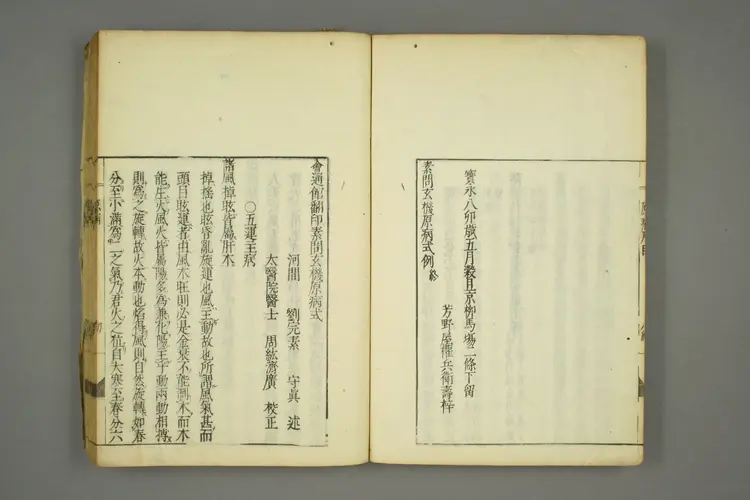 素問玄機原病式例 終
寶永八卯歲五月穀旦京御馬場二條下留
芳野屋權兵衛壽梓
會通館翻印素問玄機原病式
河間 劉完素 守眞 述
太醫院醫士 周紘濟廣 校正
〇五運主病
諸風掉眩皆屬肝木
掉搖也眩昏亂旋運也風主動故也所謂風氣甚而
頭目眩運者由風木旺則必是金衰不能制木而木
能生火風火皆屬陽多爲兼化陽主乎動兩動相搏
則爲之旋轉故火本動也焰得風則自然旋轉如春
分至小滿爲二之氣乃君火之位自大寒至春分六